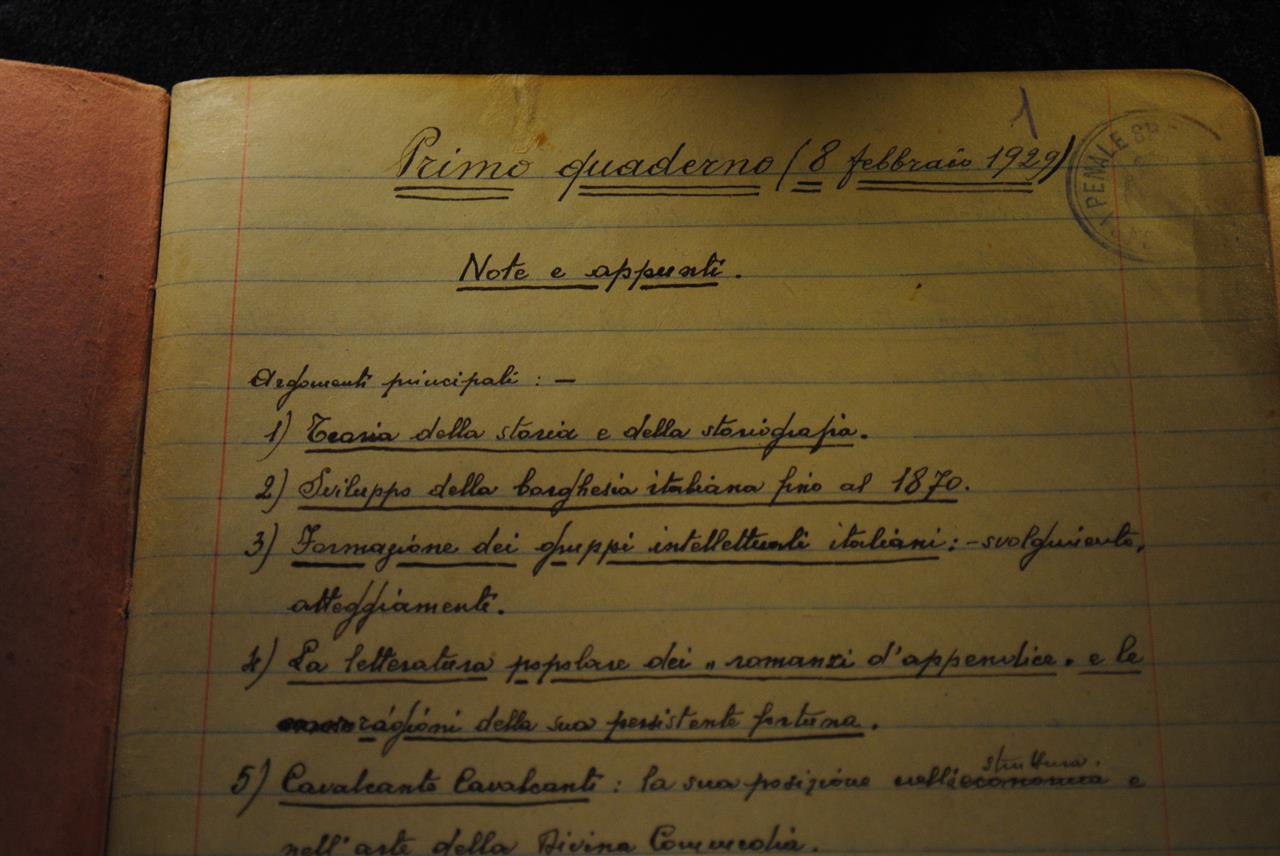 1
Primo quaderno (8 febbraio 1929)
PENALE
Note e appunti.
Argomenti principali : —
1) Teoria della storia e della storiografia.
2) Sviluppo della borghesia italiana fino al 1870.
3) Formazione dei gruppi intellettuali italiani: - svolgimento,
atteggiamenti.
4) La letteratura popolare dei „romanzi d'appendice" e le
ragioni della sua persistente fortuna.
struttura
5) Cavalcante Cavalcanti : la sua posizione nell'economia e
nell'arte della Divina Commedia.